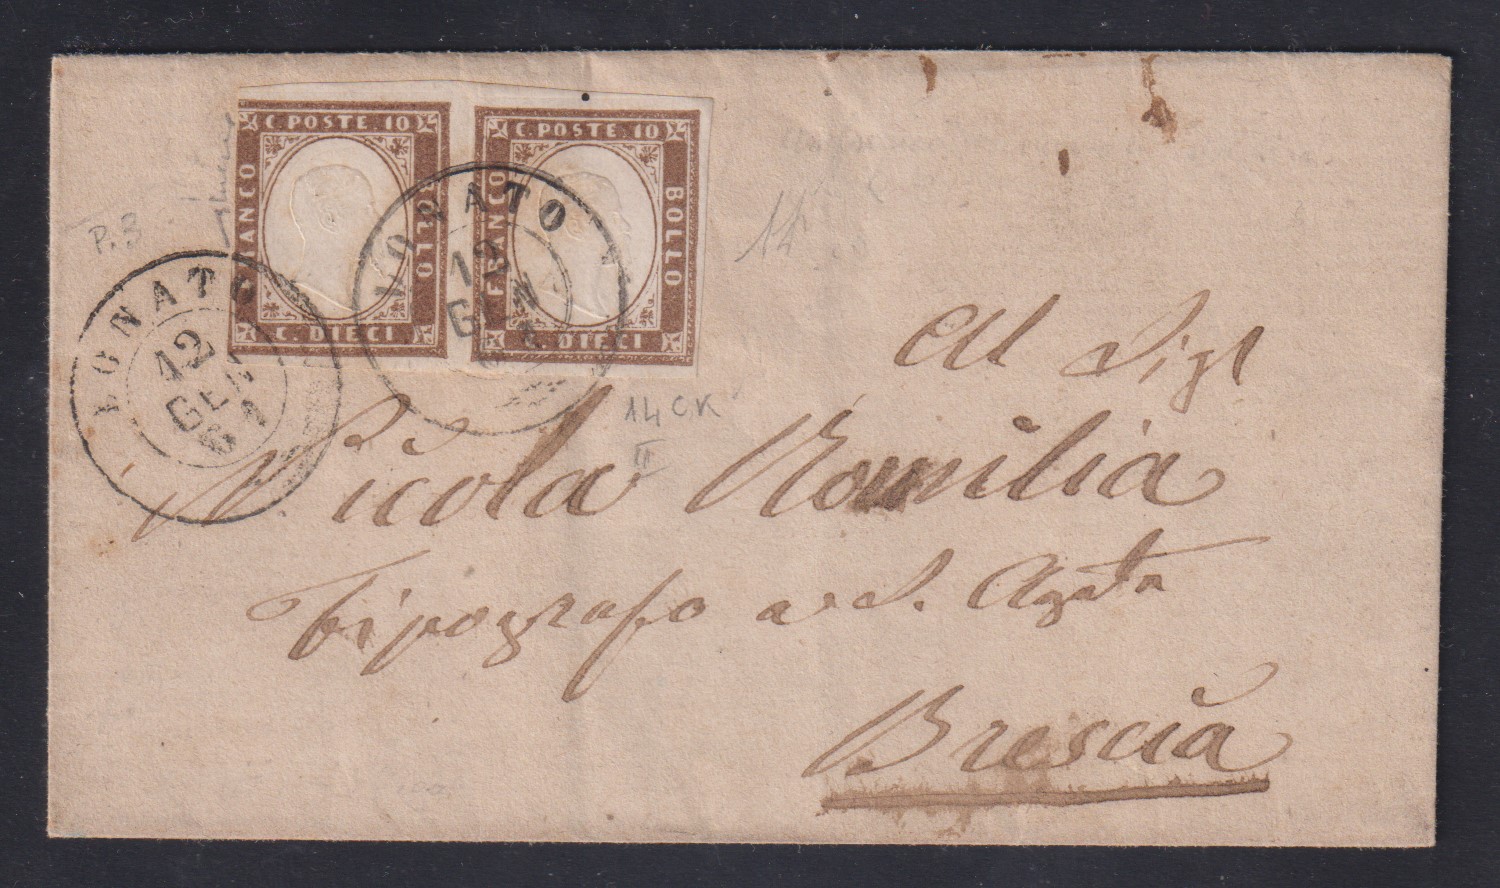 C. POSTE. 10
FRANCO
BOLLO
C. DIECI
C. POSTE. 10
FRANCO
BOLLO
C. DIECI
LONATO
12
GEN
61
LONATO
12
GEN
P.3
14
14 CK
II
Al Sigr
Nicola Romilia
Tipografo a S. Agata
Brescia